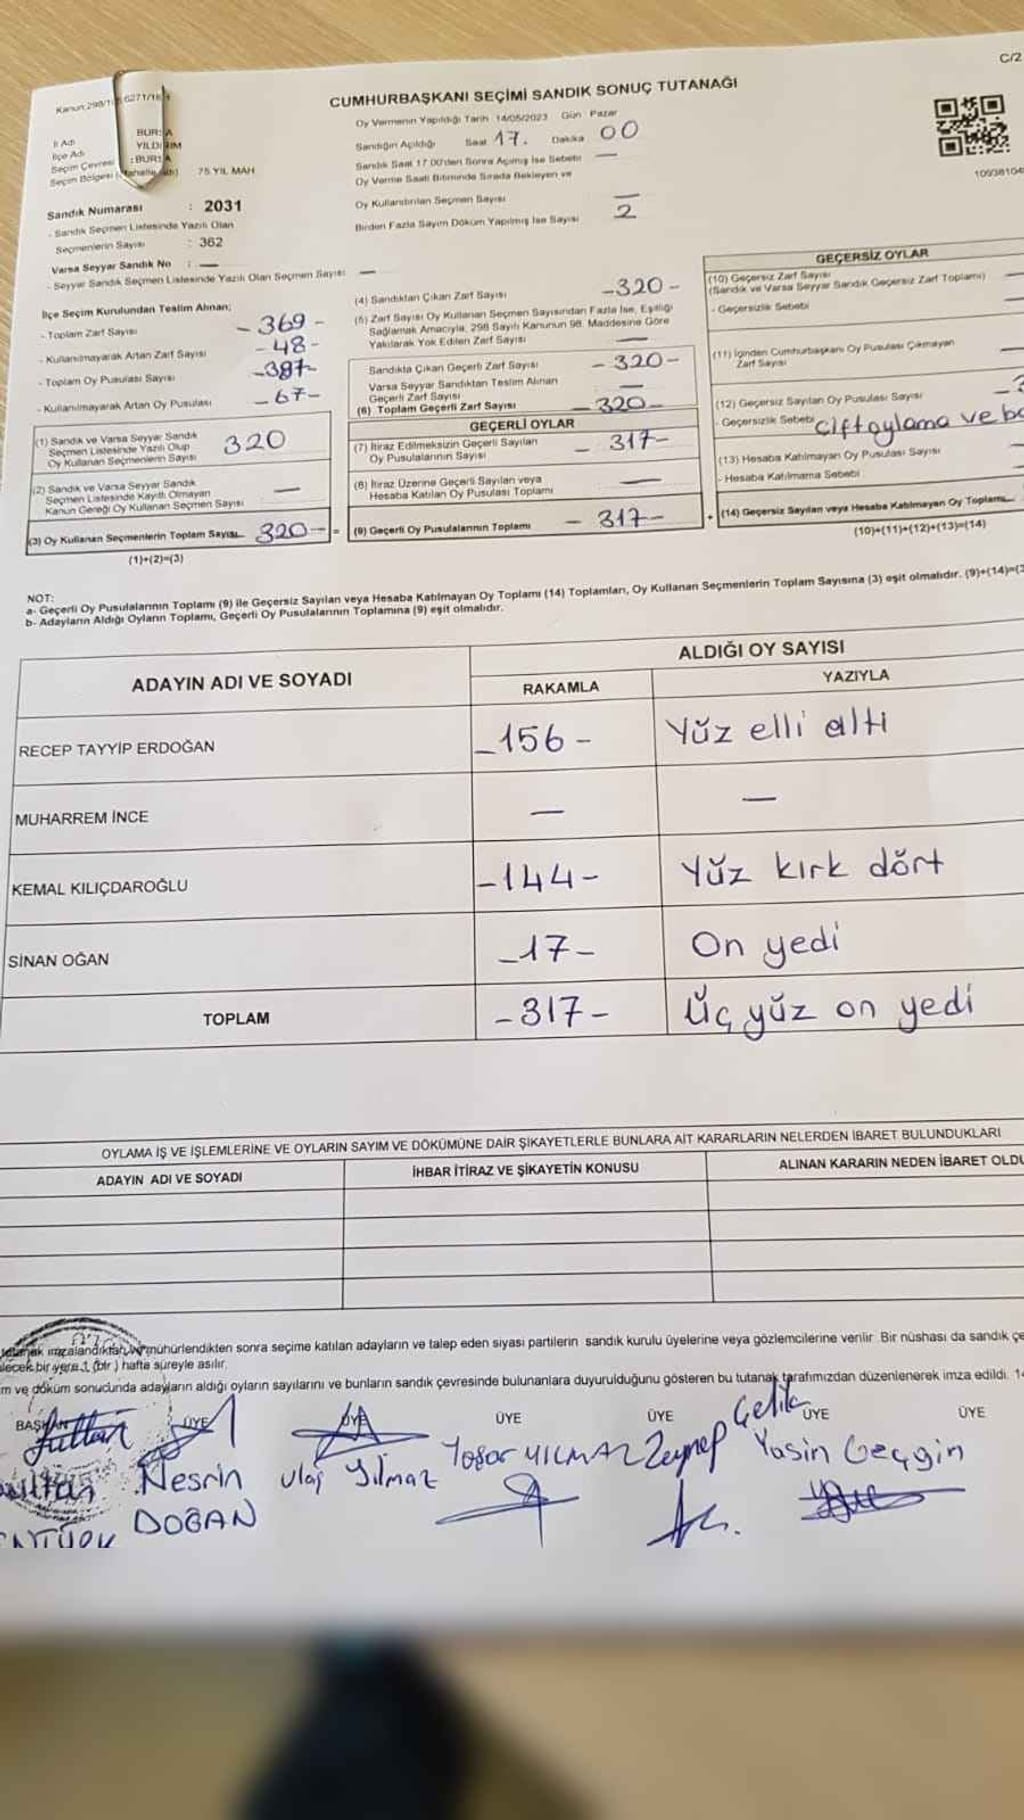 C/2
CUMHURBAŞKANI SEÇİMİ SANDIK SONUÇ TUTANAĞI
Oy Vermenin Yapıldığı Tarih 14/05/2023 Gün Pazar
Sandığın Açıldığı Saat 17. Dakika 00
Sandık Saat 17 00'den Sonra Açmış İse Sebebi —
Oy Verme Saati Bitiminde Sırada Bekleyen ve
Oy Kullandırılan Seçmen Sayısı —
Birden Fazla Sayım Döküm Yapılmış İse Sayısı 2
Kanun 298/1
6271/16
İl Adı
İlçe Adı
Seçim Çevresi
Seçim Bölgesi
75 YIL MAH
Sandık Numarası : 2031
- Sandık Seçmen Listesinde Yazılı Olan
Seçmenlerin Sayısı : 362
Varsa Seyyar Sandık No : —
- Seyyar Sandık Seçmen Listesinde Yazılı Olan Seçmen Sayısı: —
İlçe Seçim Kurulundan Teslim Alınan;
- Toplam Zarf Sayısı - 369 -
- Kullanılmayarak Artan Zarf Sayısı - 48 -
- Toplam Oy Pusulası Sayısı - 387 -
- Kullanılmayarak Artan Oy Pusulası - 67 -
(1) Sandık ve Varsa Seyyar Sandık
Seçmen Listesinde Yazılı Olup
Oy Kullanan Seçmenlerin Sayısı 320
(2) Sandık ve Varsa Seyyar Sandık
Seçmen Listesinde Kayıtlı Olmayan
Kanun Gereği Oy Kullanan Seçmen Sayısı —
(3) Oy Kullanan Seçmenlerin Toplam Sayısı 320 - =
(1)+(2)=(3)
(4) Sandıktan Çıkan Zarf Sayısı - 320 -
(5) Zarf Sayısı Oy Kullanan Seçmen Sayısından Fazla İse, Eşitliği
Sağlamak Amacıyla, 298 Sayılı Kanunun 98. Maddesine Göre
Yakılarak Yok Edilen Zarf Sayısı —
Sandıkta Çıkan Geçerli Zarf Sayısı - 320 -
Varsa Seyyar Sandıktan Teslim Alınan
Geçerli Zarf Sayısı —
(6) Toplam Geçerli Zarf Sayısı - 320 -
GEÇERLİ OYLAR
(7) İtiraz Edilmeksizin Geçerli Sayılan
Oy Pusulalarının Sayısı - 317 -
(8) İtiraz Üzerine Geçerli Sayılan veya
Hesaba Katılan Oy Pusulası Toplamı —
(9) Geçerli Oy Pusulalarının Toplamı - 317 -
GEÇERSİZ OYLAR
(10) Geçersiz Zarf Sayısı
(Sandık ve Varsa Seyyar Sandık Geçersiz Zarf Toplamı) —
- Geçersizlik Sebebi
(11) İçinden Cumhurbaşkanı Oy Pusulası Çıkmayan
Zarf Sayısı —
(12) Geçersiz Sayılan Oy Pusulası Sayısı
- Geçersizlik Sebebi Çift oylama ve
(13) Hesaba Katılmayan Oy Pusulası Sayısı
- Hesaba Katılmama Sebebi
+ (14) Geçersiz Sayılan veya Hesaba Katılmayan Oy Toplamı
(10)+(11)+(12)+(13)=(14)
NOT:
a- Geçerli Oy Pusulalarının Toplamı (9) ile Geçersiz Sayılan veya Hesaba Katılmayan Oy Toplamı (14) Toplamları, Oy Kullanan Seçmenlerin Toplam Sayısına (3) eşit olmalıdır. (9)+(14)=(3
b- Adayların Aldığı Oyların Toplamı, Geçerli Oy Pusulalarının Toplamına (9) eşit olmalıdır.
ADAYIN ADI VE SOYADI
ALDIĞI OY SAYISI
RAKAMLA YAZIYLA
RECEP TAYYİP ERDOĞAN - 156 - Yüz elli altı
MUHARREM İNCE — —
KEMAL KILIÇDAROĞLU - 144 - Yüz kırk dört
SİNAN OĞAN - 17 - On yedi
TOPLAM - 317 - Üç yüz on yedi
OYLAMA İŞ VE İŞLEMLERİNE VE OYLARIN SAYIM VE DÖKÜMÜNE DAİR ŞİKAYETLERLE BUNLARA AİT KARARLARIN NELERDEN İBARET BULUNDUKLARI
ADAYIN ADI VE SOYADI İHBAR İTİRAZ VE ŞİKAYETİN KONUSU ALINAN KARARIN NEDEN İBARET OLDU
imzalandıktan mühürlendikten sonra seçime katılan adayların ve talep eden siyasi partilerin sandık kurulu üyelerine veya gözlemcilerine verilir. Bir nüshası da sandık çe
bir yere 1 (bir) hafta süreyle asılır.
m ve döküm sonucunda adayların aldığı oyların sayılarını ve bunların sandık çevresinde bulunanlara duyurulduğunu gösteren bu tutanak tarafımızdan düzenlenerek imza edildi. 1
BAŞKAN ÜYE ÜYE ÜYE ÜYE ÜYE ÜYE
Sultan
Nesrin DOĞAN
Ulaş Yılmaz
Yaşar YILMAZ
Zeynep Çelik
Yasin Geçgin